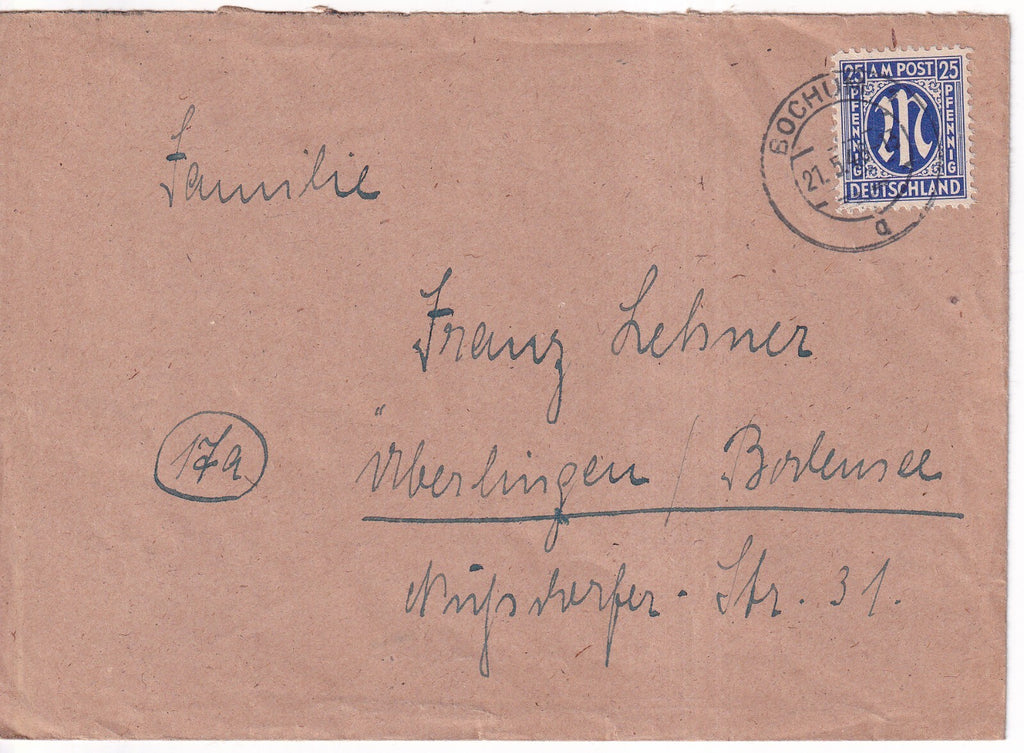 25 AM POST 25
PFENNIG
PFENNIG
DEUTSCHLAND
BOCHUM
a
Familie
Franz Lehner
17a
Überlingen / Bodensee
Nußdorfer-Str. 31.